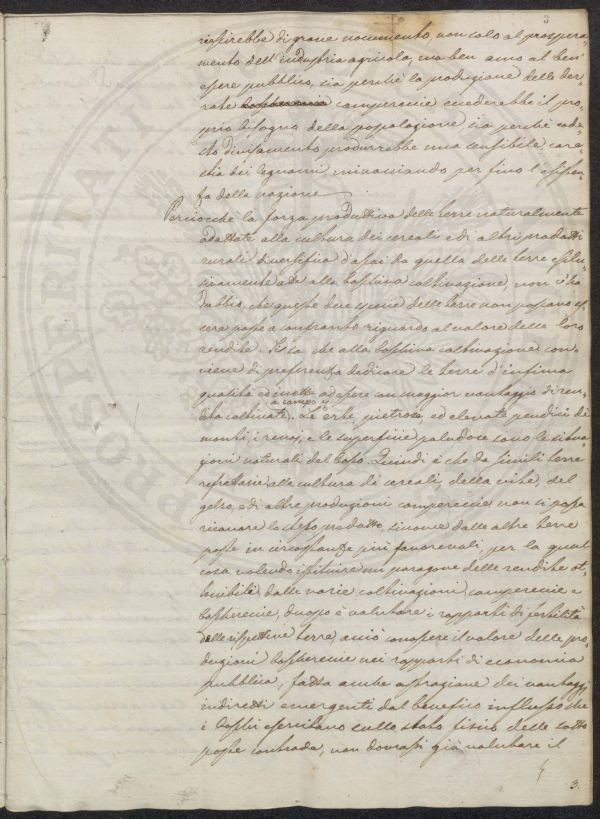 3
riescirebbe di grave nocumento non solo al prospera-
mento dell'industria agricola, ma ben anco al ben
essere pubblico, sia perchè la produzione delle der-
rate camperecie eccederebbe il pro-
prio bisogno della popolazione, sia perchè code-
sto divisamento produrrebbe una sensibile care-
stia dei legnami, minacciando per fino l'esisten-
za della nazione
Perciocchè la forza produttiva delle terre naturalmente
adattate alla cultura dei cereali e di altri prodotti
rurali diversifica d'assai da quella delle terre esclu-
sivamente atte alla boschiva coltivazione, non v'ha
dubbio, che queste due specie delle terre non possano es-
sere poste a confronto riguardo al valore delle loro
rendite. Si sa che alla boschiva coltivazione con-
viene di preferenza dedicare le terre d'infima
qualità ed inette ad essere con maggior vantaggio di ren-
dita coltivate a campo. Le erte, pietrose, ed elevate pendici di
monti, i renaj, e le superficie paludose sono le situa-
zioni naturali del bosco. Quindi è che da simili terre
rispettive alla cultura di cereali, della vite, del
gelso, e di altre produzioni camperecie non si possa
ricavare lo stesso prodotto, siccome dalle altre terre
poste in circostanze più favorevoli, per la qual
cosa volendo istituire un paragone delle rendite ot-
tenibili dalle varie coltivazioni camperecie e
boschereccie, duopo è valutare i rapporti di fertilità
delle rispettive terre, anzi conoscere il valore delle pro-
duzioni boschereccie nei rapporti di economia
pubblica, fatta anche astrazione dei vantaggi
indiretti emergenti dal benefico influsso che
i boschi esercitano sullo stato fisico delle sotto
poste contrade, non dovrassi già valutare il
3.
PROSPERITATI